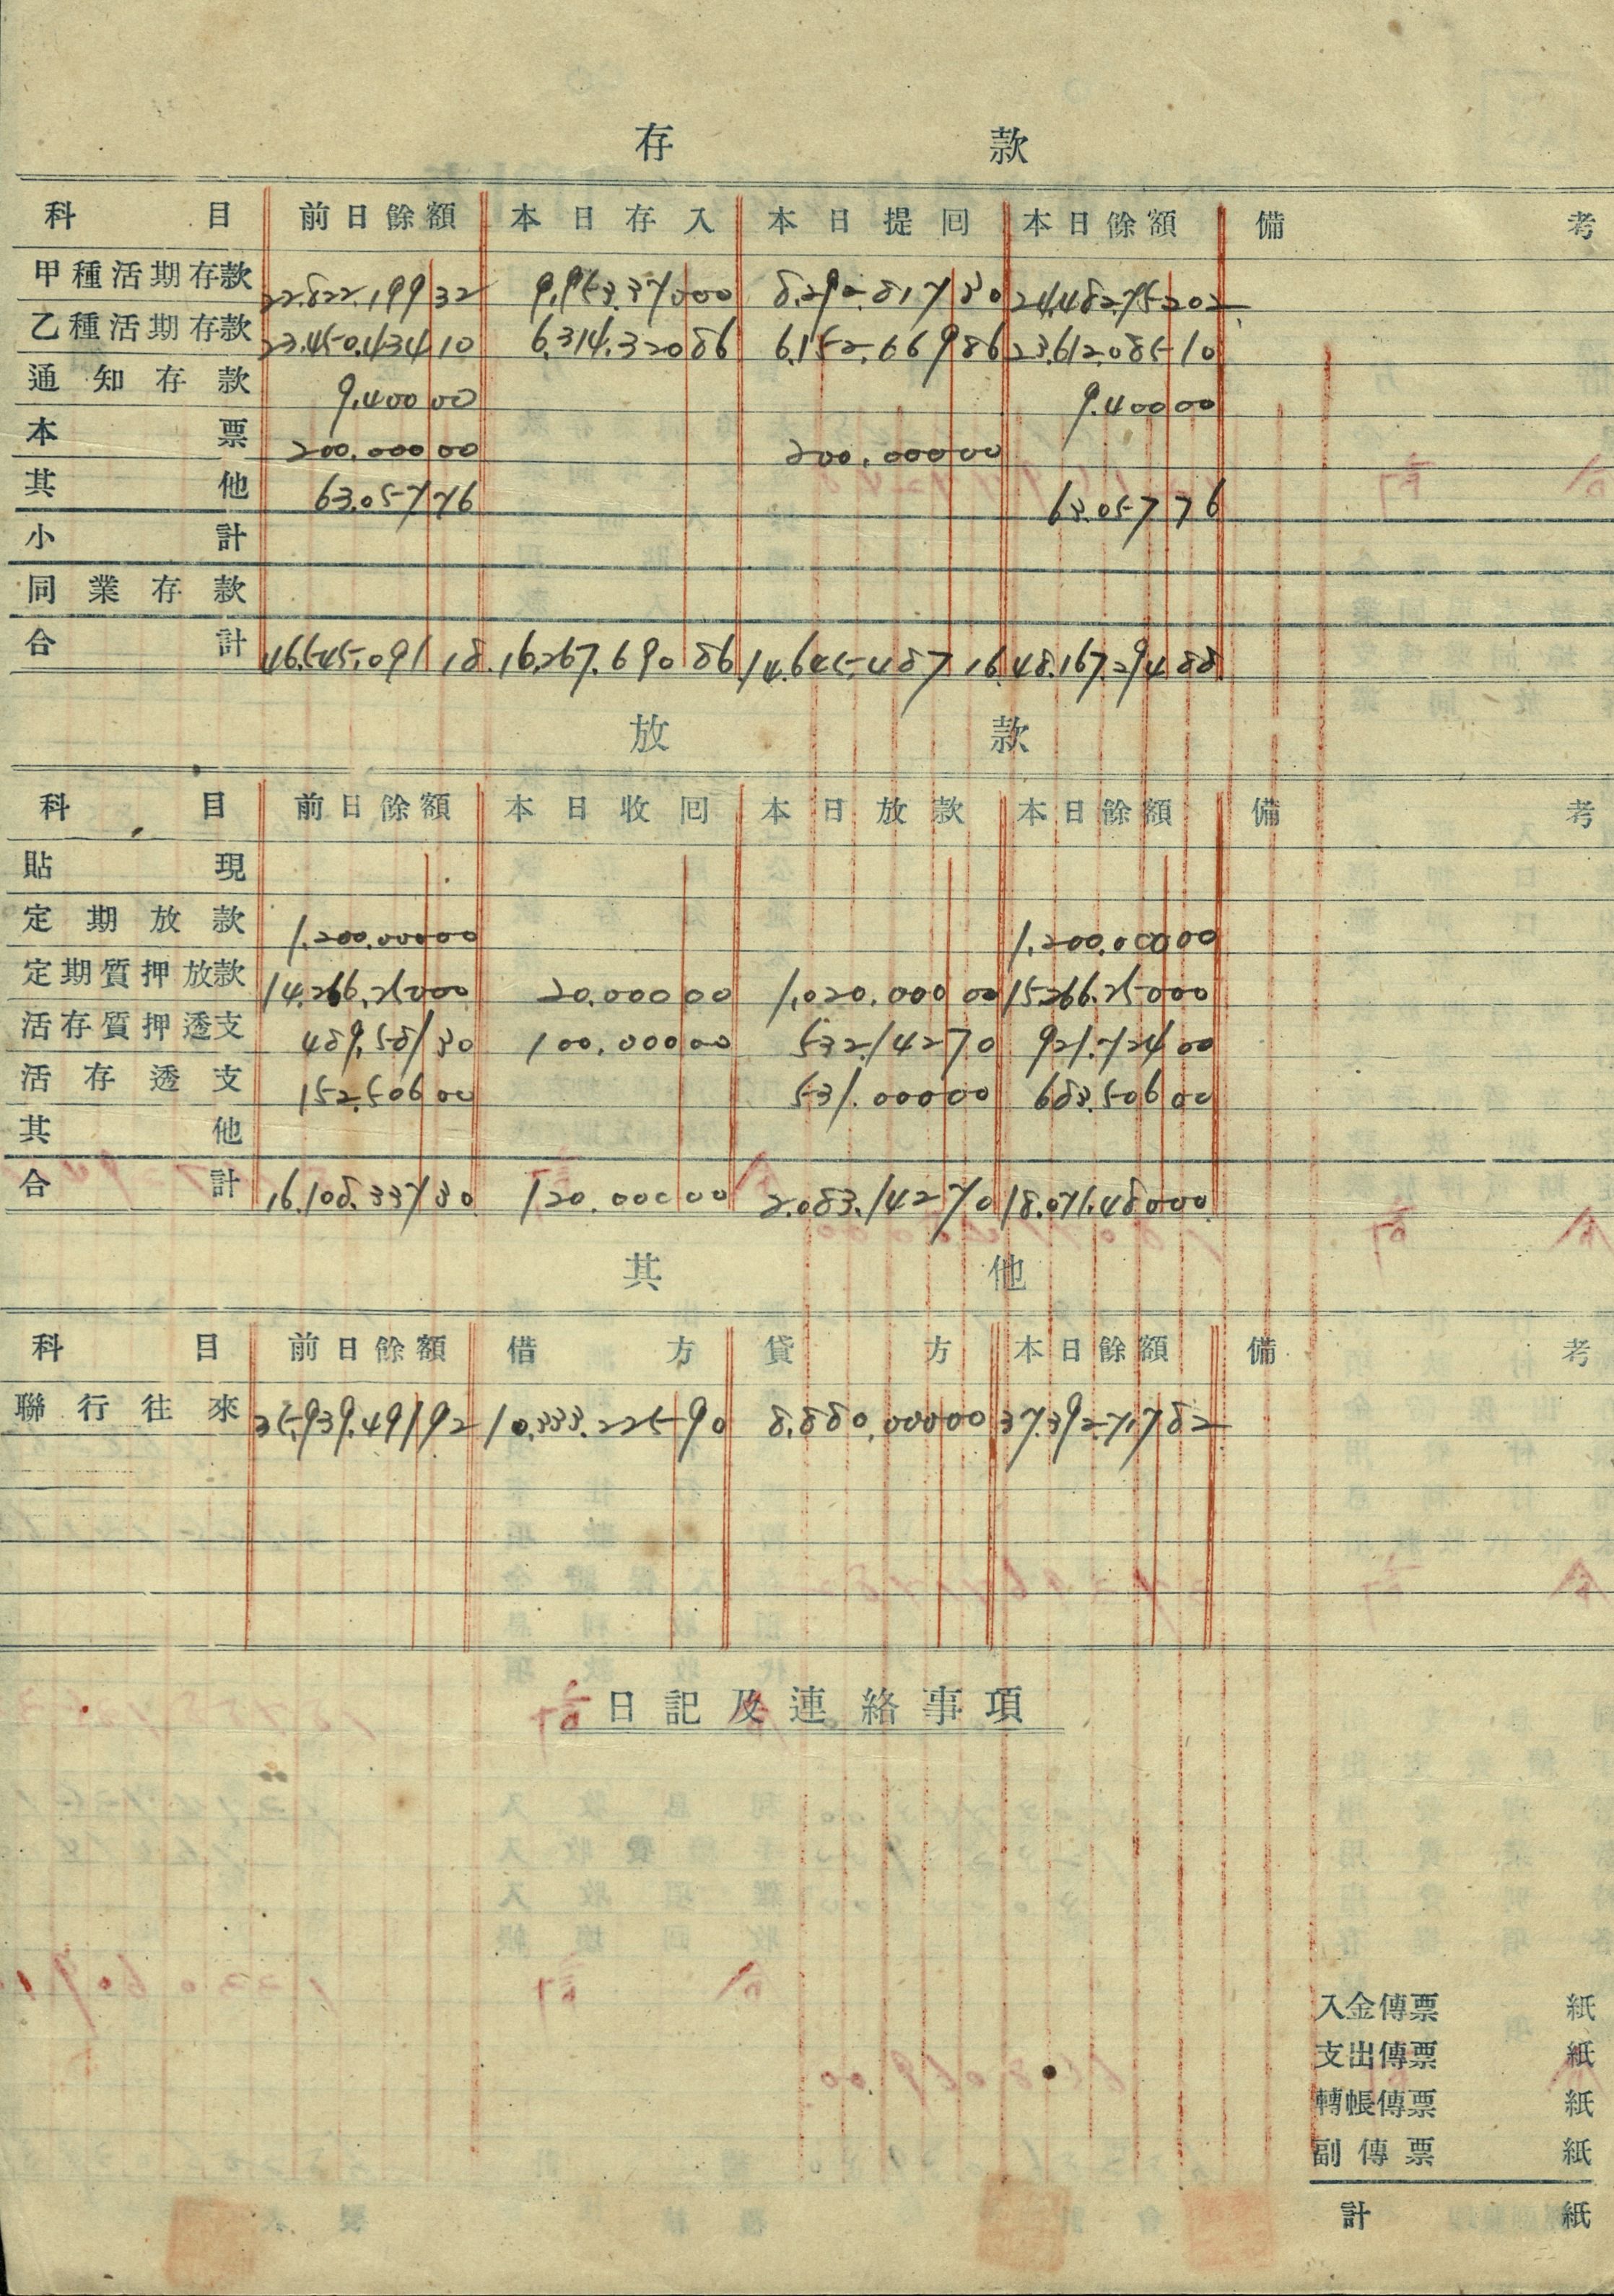 存款
科目 前日餘額 本日存入 本日提囘 本日餘額 備考
甲種活期存款 22.822.199 32 9.953.370 00 8.292.817 30 24.482.752 02
乙種活期存款 23.450.434 10 6.314.320 86 6.152.669 86 23.612.085 10
通知存款 9.400 00 9.400 00
本票 200.000 00 200.000 00
其他 63.057 76 63.057 76
小計
同業存款
合計 46.545.091 18 16.267.690 86 14.645.487 16 48.167.294 88
放款
科目 前日餘額 本日收囘 本日放款 本日餘額 備考
貼現
定期放款 1.200.000 00 1.200.000 00
定期質押放款 14.266.250 00 20.000 00 1.020.000 00 15.266.250 00
活存質押透支 489.581 30 100.000 00 532.142 70 921.724 00
活存透支 152.506 00 531.000 00 683.506 00
其他
合計 16.108.337 30 120.000 00 2.083.142 70 18.071.480 00
其他
科目 前日餘額 借方 貸方 本日餘額 備考
聯行往來 35.939.491 92 10.333.225 90 8.880.000 00 37.392.717 82
日記及連絡事項
入金傳票 紙
支出傳票 紙
轉帳傳票 紙
副傳票 紙
計 紙